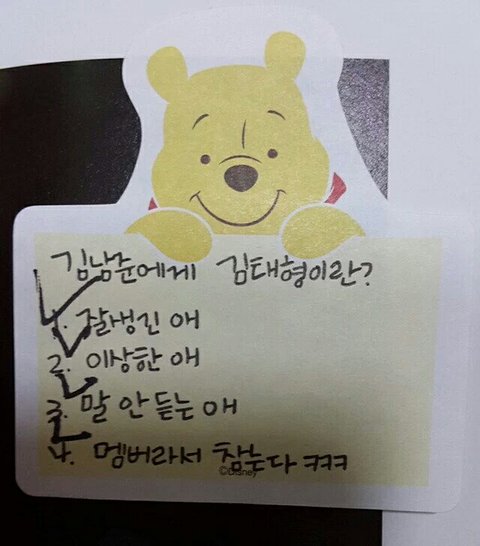 김남준에게 김태형이란?
1. 잘생긴 애
2. 이상한 애
3. 말 안 듣는 애
4. 멤버라서 참는다 ㅋㅋㅋ
©Disney